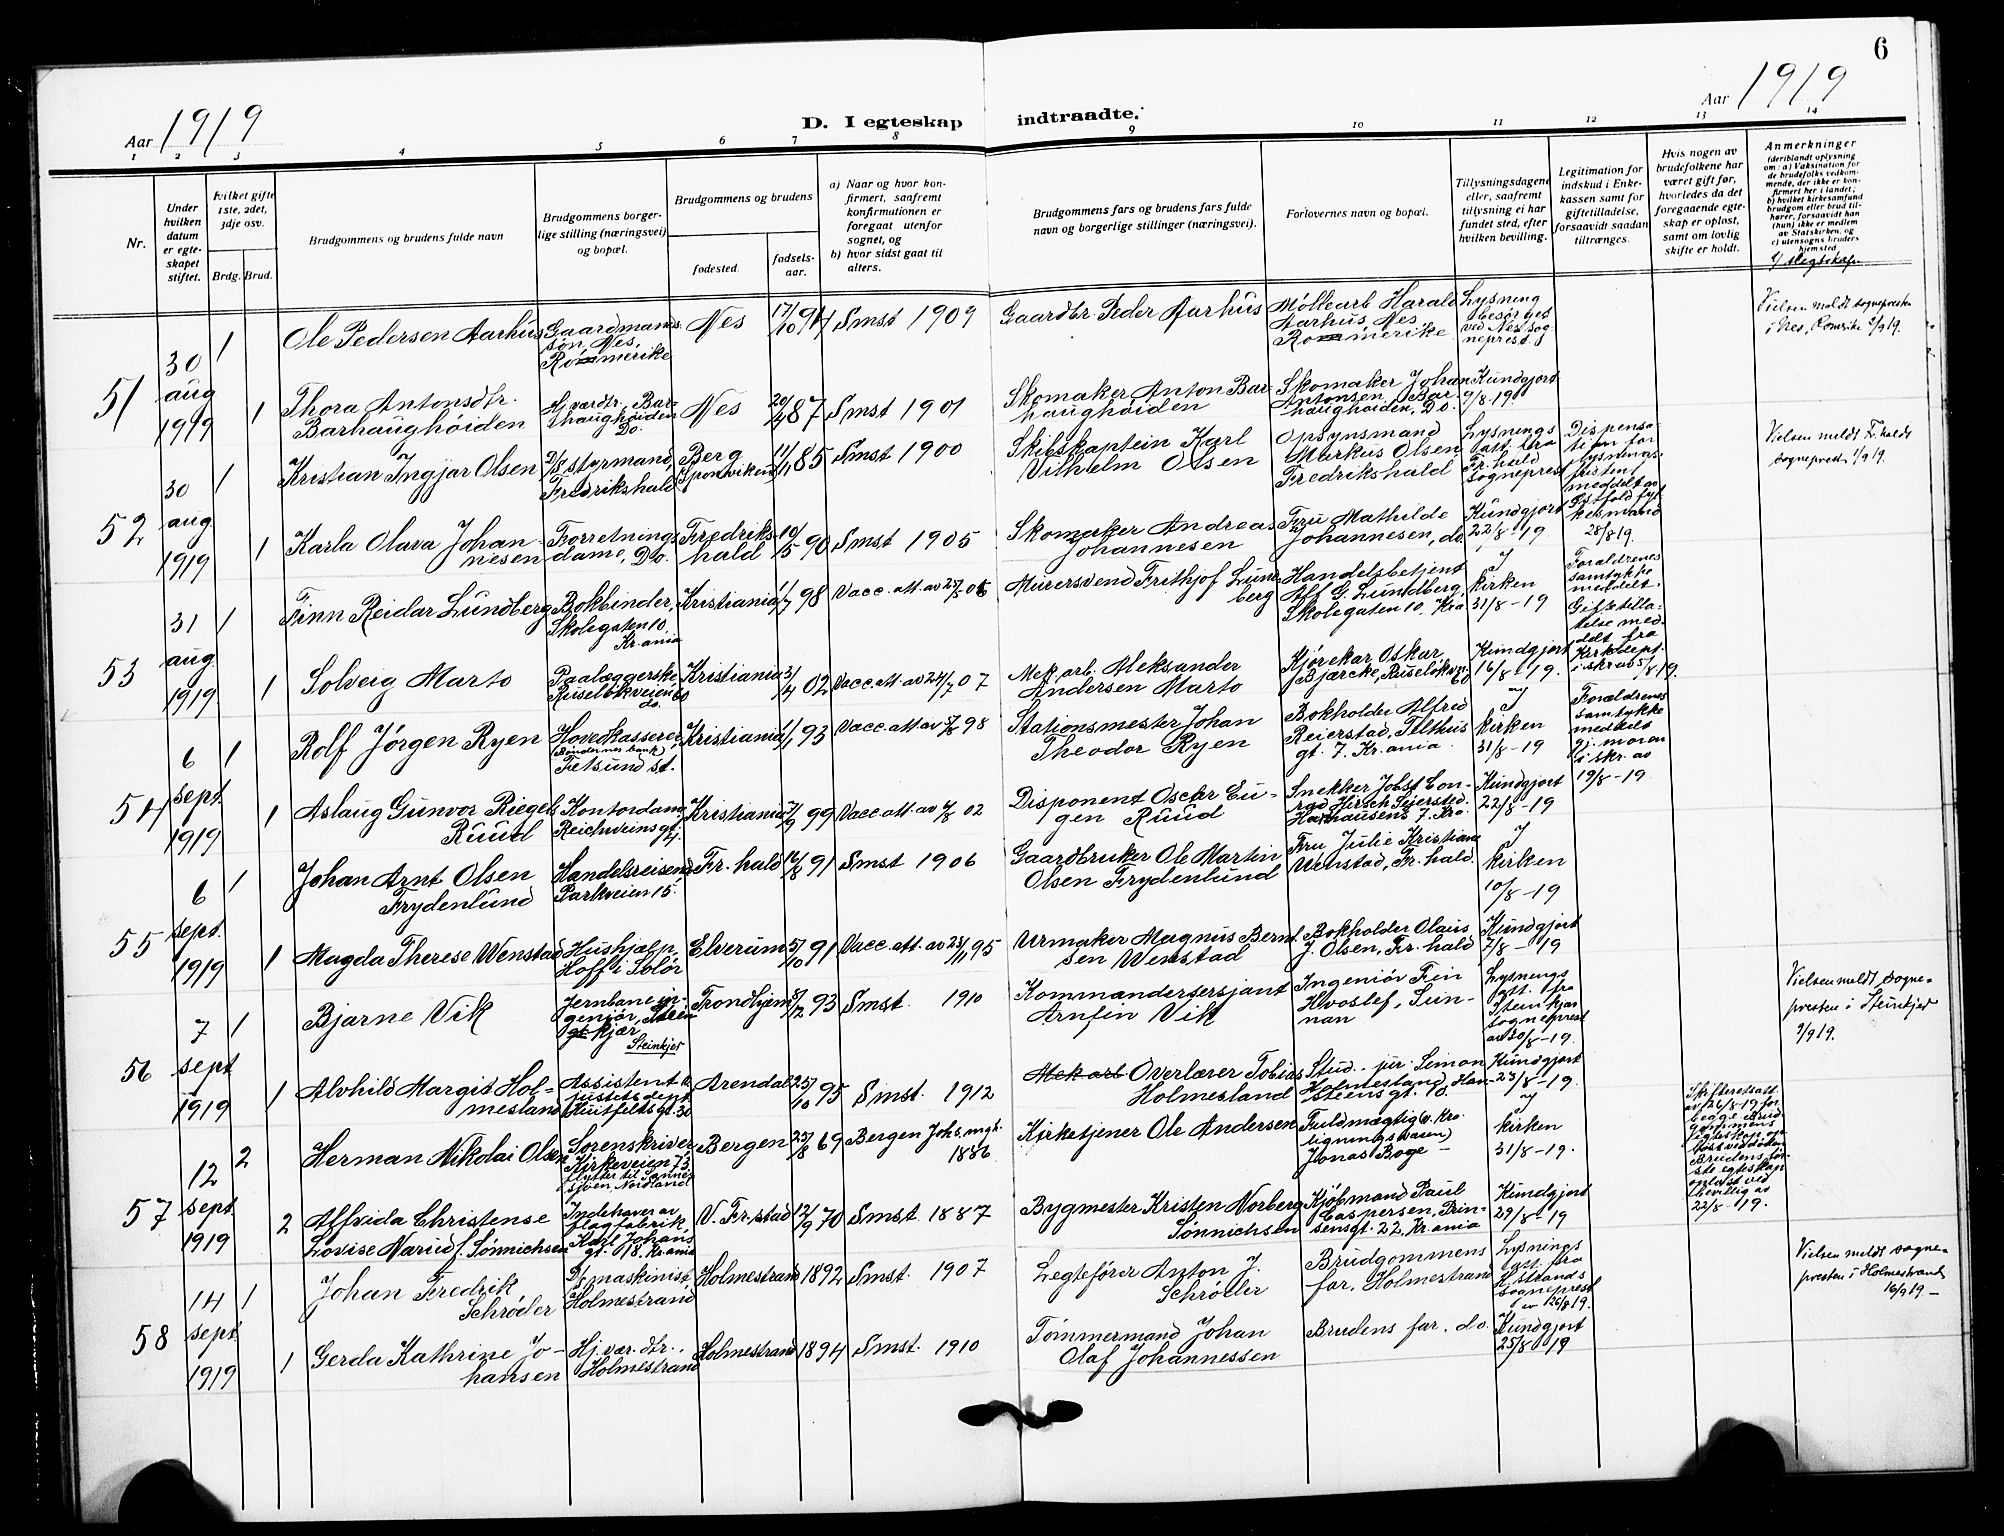 6
Aar 1919
D. I egteskap indtraadte.
Aar 1919
1 2 3 4 5 6 7 8 9 10 11 12 13 14
Nr.
Under hvilken datum er egteskapet stiftet.
Hvilket gifte 1ste, 2det, 3dje osv.
Brdg. Brud.
Brudgommens og brudens fulde navn
Brudgommens borgerlige stilling (næringsvei) og bopæl.
Brudgommens og brudens
fødested.
fødselsaar.
a) Naar og hvor konfirmert, saafremt konfirmationen er foregaat utenfor sognet, og
b) hvor sidst gaat til alters.
Brudgommens fars og brudens fars fulde navn og borgerlige stillinger (næringsvei).
Forlovernes navn og bopæl.
Tillysningsdagene eller, saafremt tillysning ei har fundet sted, efter hvilken bevilling.
Legitimation for indskud i Enkekassen samt for giftetilladelse, forsaavidt saadan tiltrænges.
Hvis nogen av brudefolkene har været gift før, hvorledes da det foregaaende egteskap er opløst, samt om lovlig skifte er holdt.
Anmerkninger
(deriblandt oplysning om: a) Vaksination for de brudefolks vedkommende, der ikke er konfirmert her i landet; b) hvilket kirkesamfund brudgom eller brud tilhører, forsaavidt han (hun) ikke er medlem av Statskirken, og c) utensogns bruders hjemsted.
51
30 aug 1919
1
Ole Pedersen Aarhus
Gaardmands søn, Nes, Romerike
Nes
17/10 94
Smst 1909
Gaardbr. Peder Aarhus
Møllearb Harald Aarhus, Nes Romerike
Lysning besørget ved Nes sogneprest
Vielsen meldt sognepresten i Nes, Romerike 2/9 19.
1
Thora Antonsdtr. Barhaughøiden
Hj.værdtr, Barhaughøiden Do.
Nes
20/4 87
Smst 1901
Skomaker Anton Barhaughøiden
Skomaker Johan Antonsen, Barhaughøiden, Do.
Kundgjort 9/8-19.
52
30 aug 1919
1
Kristian Ingjar Olsen
2/8 styrmand, Fredrikshald
Berg Sponviken
11/11 85
Smst 1900
Skibskaptein Karl Vilhelm Olsen
Opsynsmand Markus Olsen Fredrikshald
Lysnings att. fra Fr.hald sogneprest
Dispensation for lysningsfristen meddelt av Østfold fylkesmand 28/8 19.
Vielsen meldt Fr.halds sogneprest 1/9 19.
1
Karla Olava Johannesen
Forretningsdame, Do.
Fredrikshald
10/5 90
Smst 1905
Skomaker Andreas Johannesen
Fru Mathilde Johannesen, do
Kundgjort 22/8-19
53
31 aug 1919
1
Finn Reidar Lundberg
Bokbinder, Skolegaten 10, Kr.ania
Kristiania
1/7 98
Vacc. att. av 23/5-06
Murersvend Frithjof Lundberg
Handelsbetjent Alf G. Lundberg, Skolegaten 10, Kra
I kirken 31/8-19
Forældrenes samtykke meddelt. Giftetilladelse meddelt fra Kirkedept. i skr. av 5/8 19.
1
Solveig Marto
Paalæggerske Ruseløkveien 60 do.
Kristiania
3/4 02
Vacc. att. av 24/7 07
Mek. arb. Aleksander Andersen Marto
Kjørekar Oskar Bjærcke, Ruseløkvn. 60
Kundgjort 16/8-19.
54
6 sept 1919
1
Rolf Jørgen Ryen
Hovedkasserer (Bøndernes bank) Fetsund st.
Kristiania
1/1 93
Vacc. att. av 5/8 98
Stationsmester Johan Theodor Ryen
Bokholder Alfred Reierstad, Telthus gt. 7. Kr.ania
I kirken 31/8-19
Forældrenes samtykke meddelt gj. moren i skr. av 19/8-19.
1
Aslaug Gunvor Riegels Ruud
Kontordame Reichweinsgt.
Kristiania
7/9 99
Vacc. att. av 4/8 02
Disponent Oscar Eugen Ruud
Snekker Jobst Conrad Hirsch Seiersted. Harhausens 7. Kra
Kundgjort 22/8-19
55
6 sept. 1919
1
Johan Arnt Olsen Frydenlund
Handelsreisende Parkveien 15.
Fr. hald
16/8 91
Smst 1906
Gaardbruker Ole Martin Olsen Frydenlund
Fru Julie Kristiane Wenstad, Fr. hald.
I kirken 10/8-19
1
Magda Therese Wenstad
Hushjælp, Hoff i Solør
Elverum
5/10 91
Vacc. att. av 23/11 95
Urmaker Magnus Berntsen Wenstad
Bokholder Olaus J. Olsen, Fr. hald
Kundgjort 7/8-19
56
7 sept 1919
1
Bjarne Vik
Jernbaneingeniør, Steinkjær Steinkjer
Trondhjem
5/7 93
Smst. 1910
Kommandersersjant Arnfin Vik
Ingeniør Fin Hvoslef, Sunnan
Lysnings att. fra Steinkjær sogneprest av 30/8-19.
Vielsen meldt sognepresten i Steinkjer 9/9 19.
1
Alvhild Margit Holmesland
Assistent v. justitsdept. Huitfeldtsgt. 30
Arendal
25/10 95
Smst. 1912
Mek arb Overlærer Tobias Holmesland
Stud. jur. Simon Holmesland, Hansteensgt. 10.
Kundgjort 23/8-19.
57
12 sept 1919
2
Herman Nikolai Olsen
Sorenskriver Kirkeveien 73 flytter til Sannessjøen, Nordland
Bergen
25/8 69
Bergen Johs. mgh. 1886
Kirketjener Ole Andersen
Fuldmægtig v. Kra ligningsvæsen Jonas Boge
I kirken 31/8-19.
Skifteretsatt. av 26/8-19 for begge. Brudgommens egteskap opløst ved døden. Brudens første egteskap opløst ved bevillig av 22/8-19.
2
Alfrida Christense Lovise Narud f. Sønnichsen
Indehaver av flagfabrik Karl Johans gt. 18. Kr.ania
V. Fr.stad
12/9 70
Smst. 1887
Bygmester Kristen Norberg Sønnichsen
Kjøbmand Paul Caspersen, Prinsensgt. 22, Kr.ania
Kundgjort 29/8-19
58
14 sept 1919
1
Johan Fredrik Schrøder
D/s maskinist Holmestrand
Holmestrand
1892
Smst. 1907
Legtefører Anton J. Schrøder
Brudgommens far, Holmestrand
Lysnings att. fra H.strands sogneprest av 26/8 19.
Vielsen meldt sognepresten i Holmestrand 16/9 19.-
1
Gerda Kathrine Johansen
Hj. vær. dtr., Holmestrand
Holmestrand
1894
Smst. 1910
Tømmermand Johan Olaf Johannessen
Brudens far. do.
Kundgjort 25/8 1919